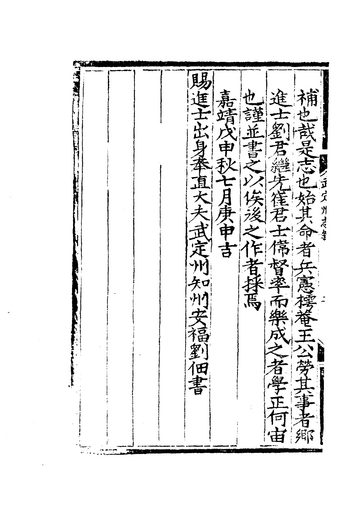 補也哉是志也始其命者兵憲樗菴王公勞其事者鄉
進士劉君繼先崔君士儒督率而樂成之者學正何宙
也謹並書之以俟後之作者採焉
嘉靖戊申秋七月庚申吉
賜進士出身奉直大夫武定州知州安福劉佃書
武定州志